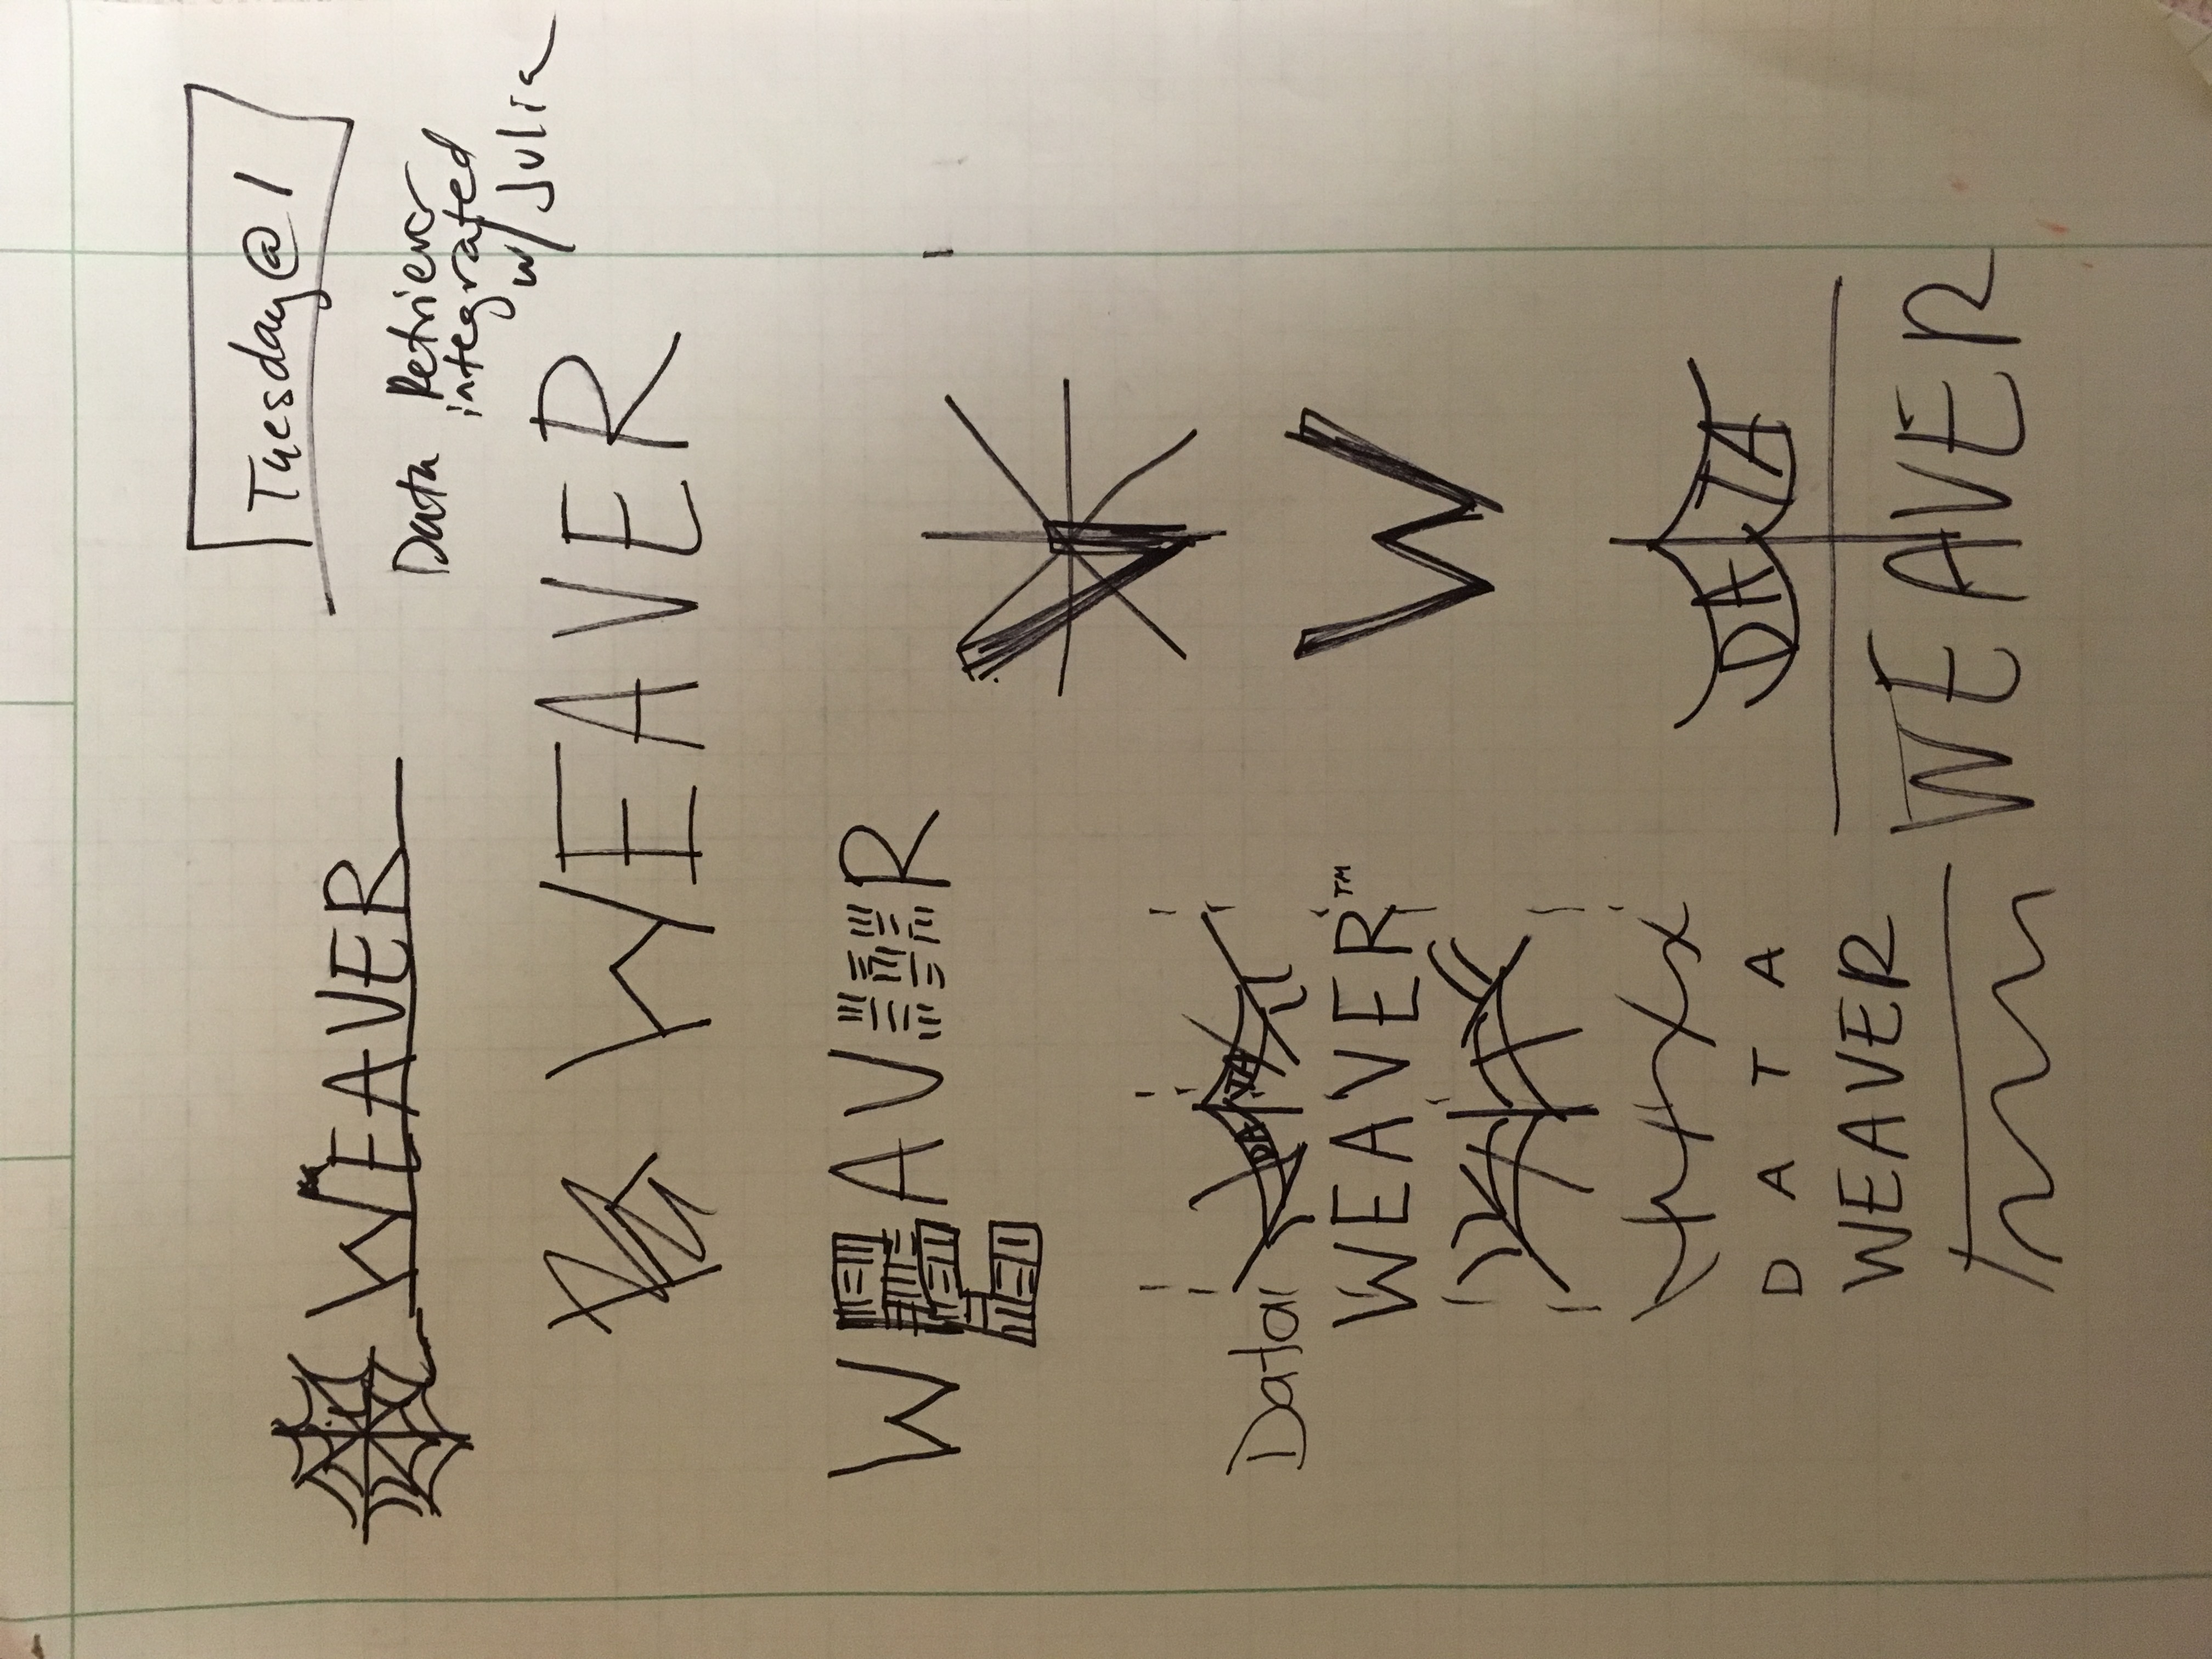 Tuesday@1
WEAVER
Data Retriever
integrated
w/Julia
WEAVER
WEAVER
DATA
Data
WEAVER™
W
DATA
DATA
WEAVER
WEAVER